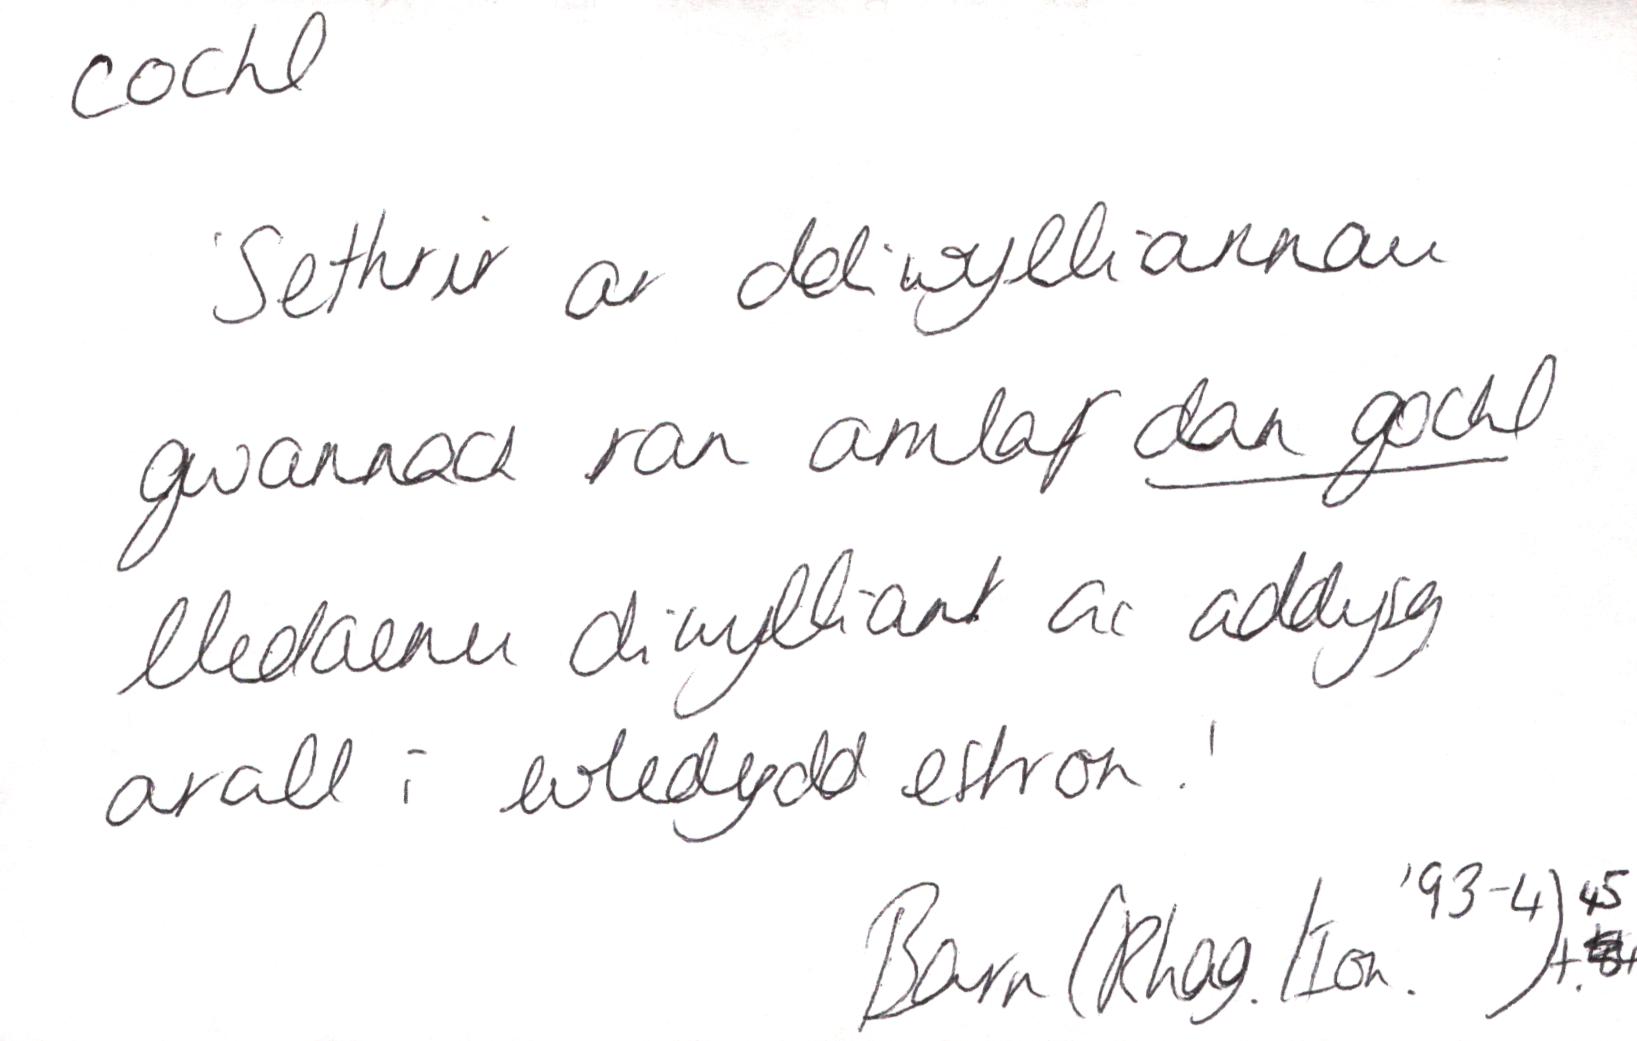 cochl
'Sethrir ar ddiwylliannau
gwannach ran amlaf dan gochl
lledaenu diwylliant ac addysg
arall i wledydd estron.'
Barn (Rhag./Ion. '93-4) 45